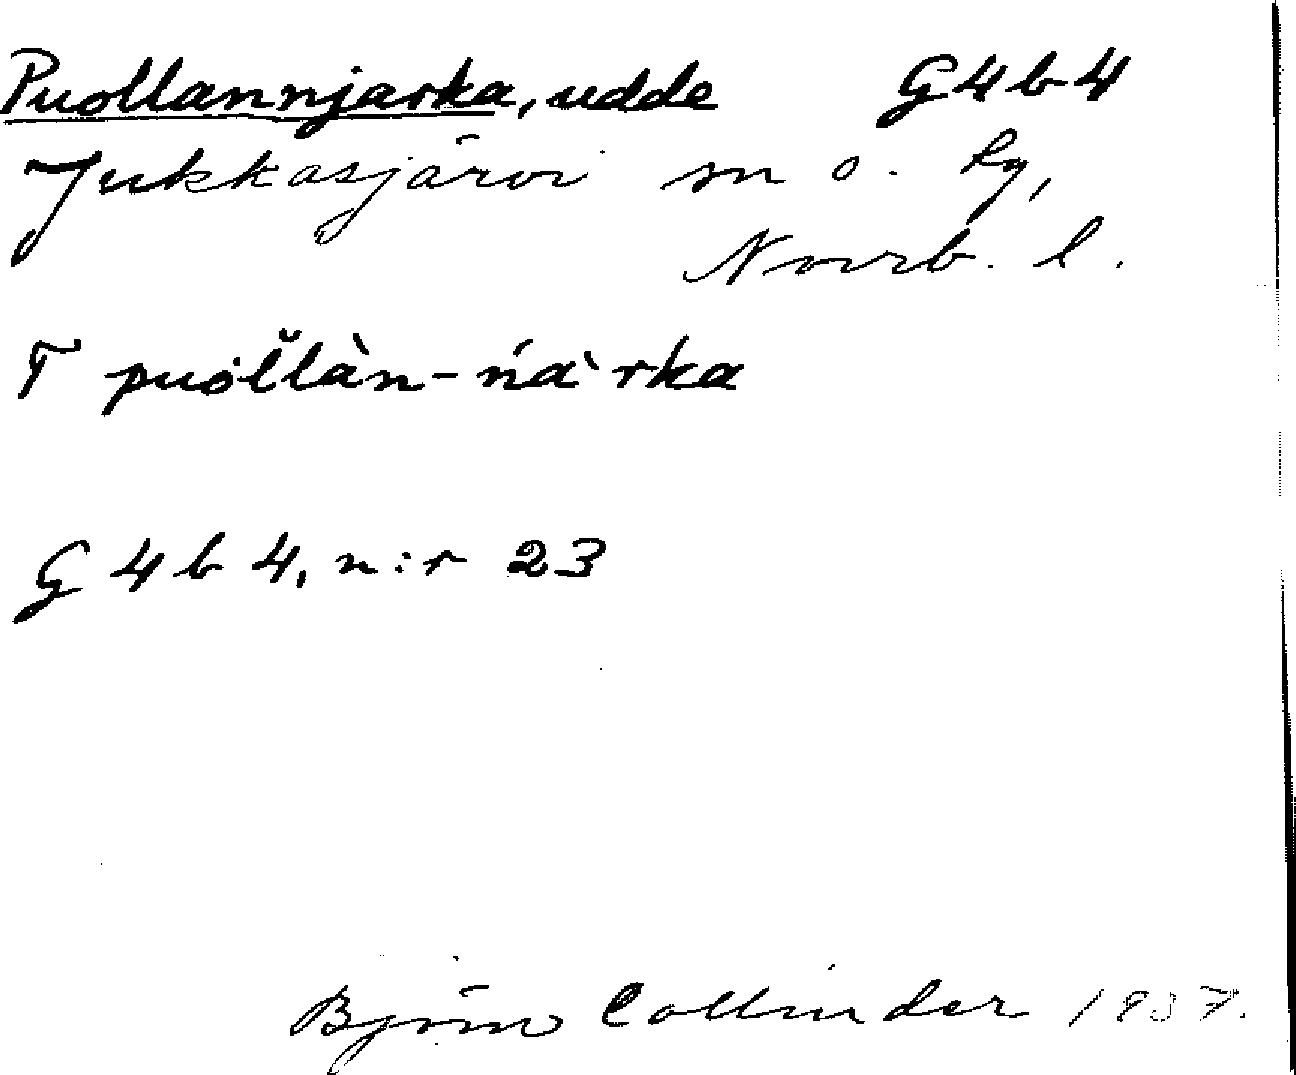 Puollannjarka, udde G4b4
Jukkasjärvi sn o. lg,
Norrb. l.
T puo̭l̆làn-ńàrka
G 4 b 4, n:r 23
Björn Collinder 1937.